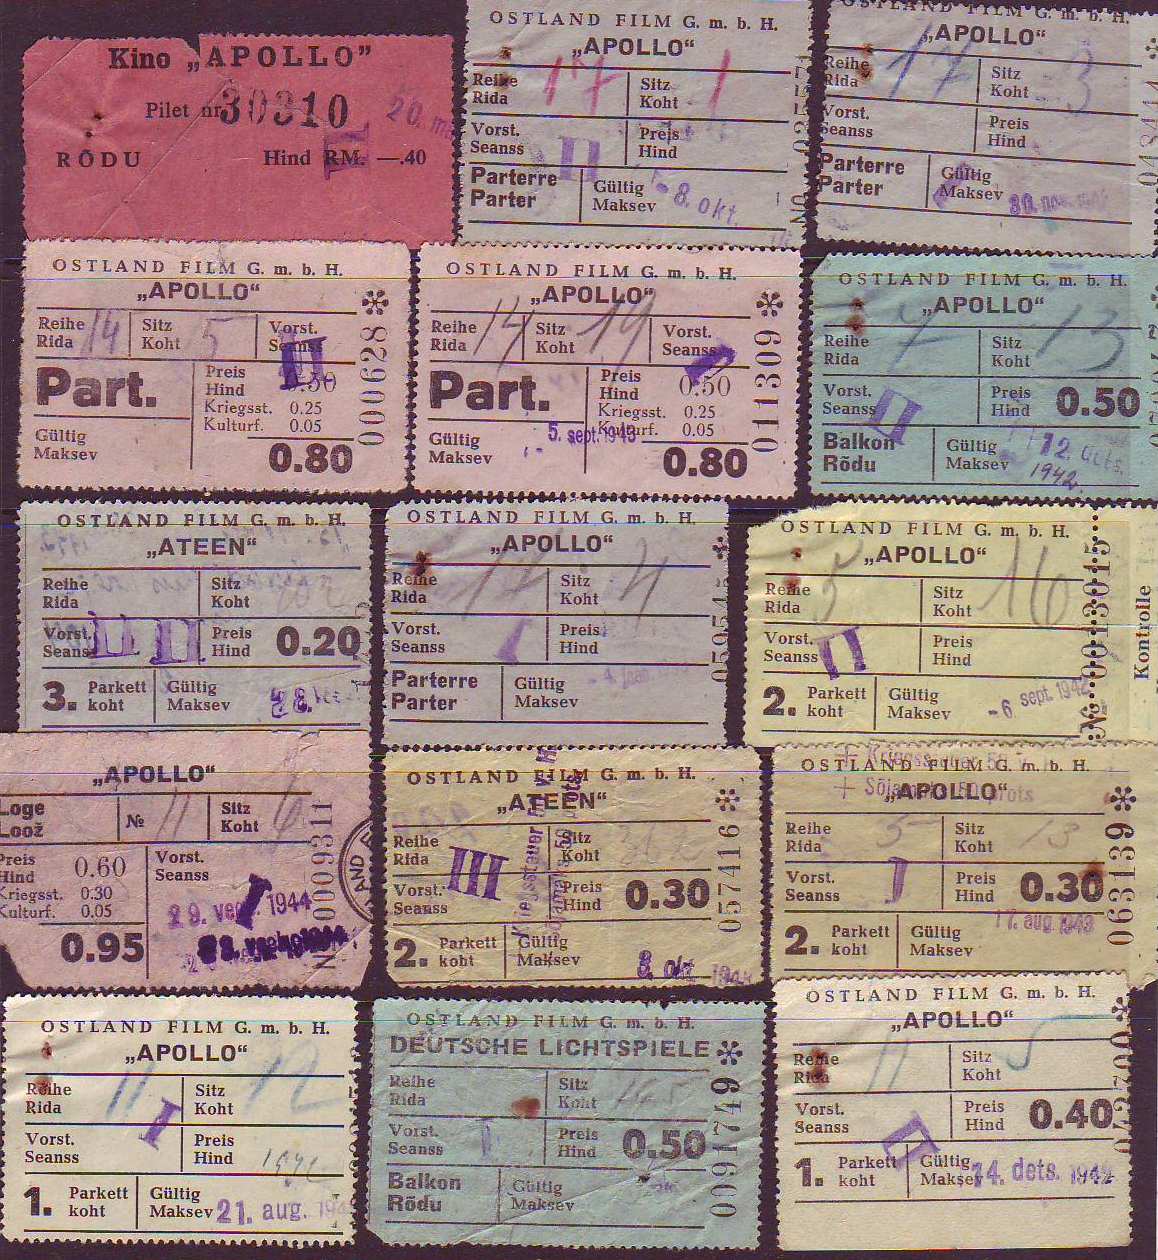 Kino „APOLLO”
Pilet nr.
30910
20.
RÕDU
Hind RM. —.40
OSTLAND FILM G. m. b. H.
„APOLLO“
Reihe
Rida
17
Sitz
Koht
1
Vorst.
Seanss
II
Preis
Hind
Parterre
Parter
Gültig
Maksev
- 8. okt.
OSTLAND FILM G. m. b. H.
„APOLLO“
Reihe
Rida
17
Sitz
Koht
3
Vorst.
Seanss
Preis
Hind
Parterre
Parter
Gültig
Maksev
30. nov.
OSTLAND FILM G. m. b. H.
„APOLLO“
Reihe
Rida
14
Sitz
Koht
5
Vorst.
Seanss
II
Part.
Preis
Hind
0.50
Kriegsst. 0.25
Kulturf. 0.05
Gültig
Maksev
0.80
000628
OSTLAND FILM G. m. b. H.
„APOLLO“
Reihe
Rida
14
Sitz
Koht
19
Vorst.
Seanss
I
Part.
Preis
Hind
0.50
Kriegsst. 0.25
Kulturf. 0.05
Gültig
Maksev
5. sept. 1943
0.80
011309
OSTLAND FILM G. m. b. H.
„APOLLO“
Reihe
Rida
7
Sitz
Koht
13
Vorst.
Seanss
II
Preis
Hind
0.50
Balkon
Rõdu
Gültig
Maksev
12. dets.
1942
OSTLAND FILM G. m. b. H.
„ATEEN“
Reihe
Rida
Sitz
Koht
Vorst.
Seanss
II II
Preis
Hind
0.20
3. Parkett
koht
Gültig
Maksev
OSTLAND FILM G. m. b. H.
„APOLLO“
Reihe
Rida
17
Sitz
Koht
4
Vorst.
Seanss
I
Preis
Hind
Parterre
Parter
Gültig
Maksev
- 4. jaan.
OSTLAND FILM G. m. b. H.
„APOLLO“
Reihe
Rida
5
Sitz
Koht
16
Vorst.
Seanss
II
Preis
Hind
2. Parkett
koht
Gültig
Maksev
- 6. sept. 1942
№ 0013015
Kontrolle
„APOLLO“
Loge
Loož
№
11
Sitz
Koht
6
Preis
Hind
0.60
Kriegsst. 0.30
Kulturf. 0.05
0.95
Vorst.
Seanss
I
29. veebr. 1944
N 0009311
OSTLAND FILM G. m. b. H.
„ATEEN“
Reihe
Rida
Sitz
Koht
Vorst.
Seanss
III
Preis
Hind
0.30
2. Parkett
koht
Gültig
Maksev
3. okt
057416
+ Kriegssteuer 50 v. H.
+ Sõjamaks 50 prots
OSTLAND FILM G. m. b. H.
„APOLLO“
Reihe
Rida
5
Sitz
Koht
13
Vorst.
Seanss
I
Preis
Hind
0.30
2. Parkett
koht
Gültig
Maksev
17. aug. 1943
063139
OSTLAND FILM G. m. b. H.
„APOLLO“
Reihe
Rida
11
Sitz
Koht
12
Vorst.
Seanss
I
Preis
Hind
1. Parkett
koht
Gültig
Maksev
21. aug.
OSTLAND FILM G. m. b. H.
DEUTSCHE LICHTSPIELE
Reihe
Rida
Sitz
Koht
Vorst.
Seanss
I
Preis
Hind
0.50
Balkon
Rõdu
Gültig
Maksev
0091749
OSTLAND FILM G. m. b. H.
„APOLLO“
Reihe
Rida
11
Sitz
Koht
5
Vorst.
Seanss
Preis
Hind
0.40
1. Parkett
koht
II
Gültig
Maksev
14. dets. 1942